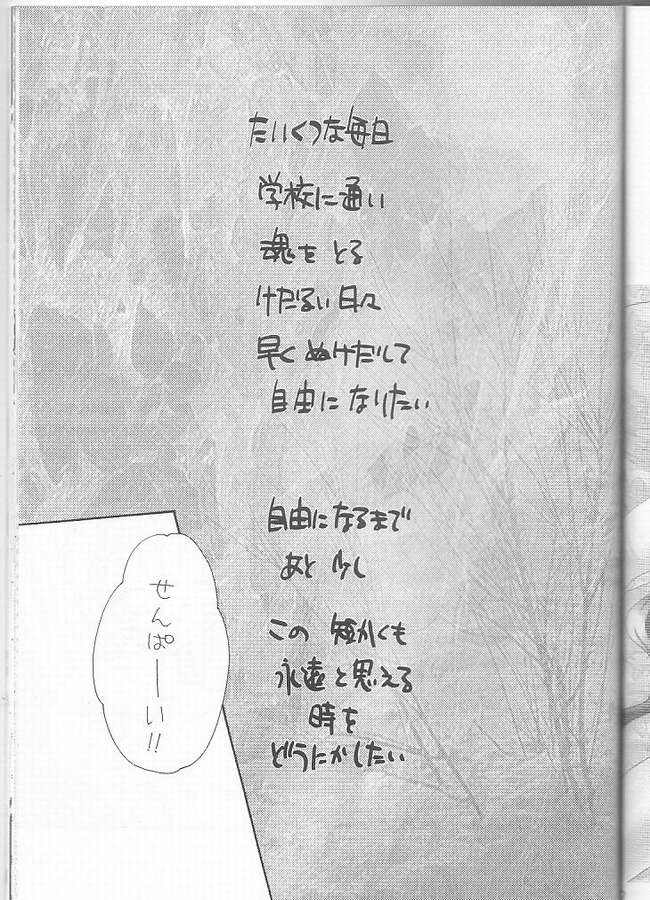 たいくつな毎日
学校に通い
魂を とる
けだるい日々
早く ぬけだして
自由に なりたい
自由に なるまで
あと 少し
この 短かくも
永遠と思える
時を
どうにかしたい
せんぱーい!!